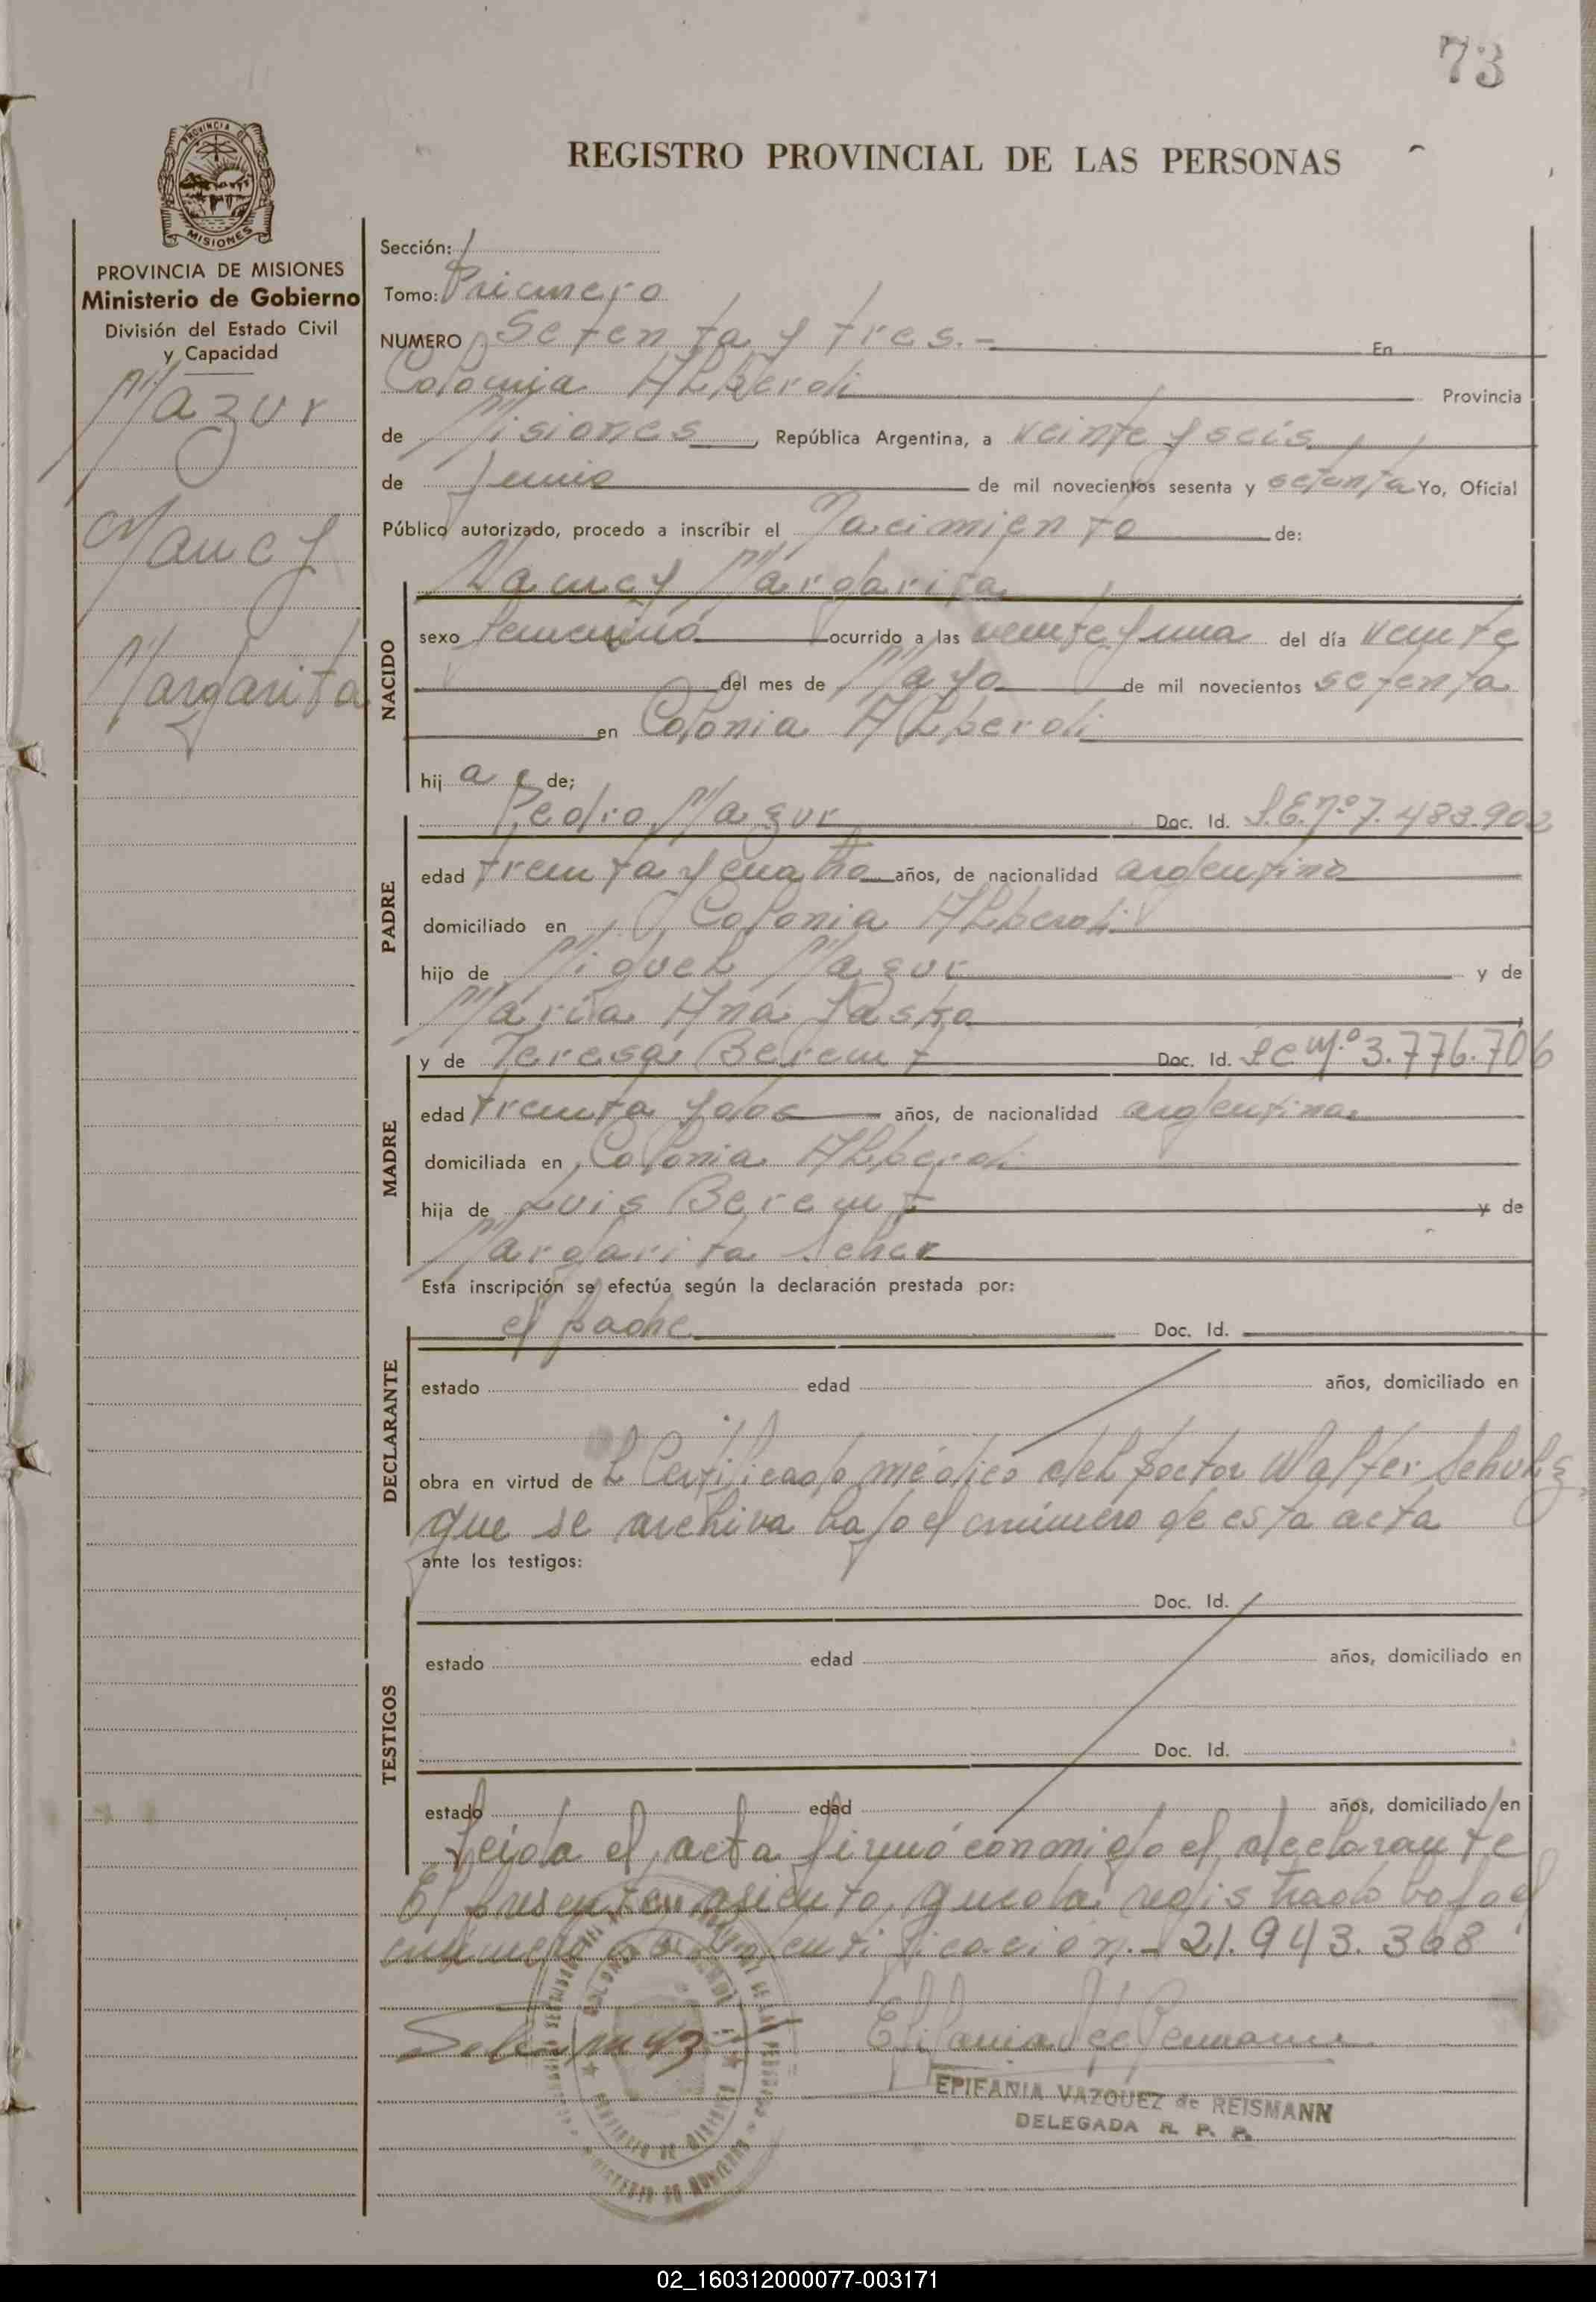 73
PROVINCIA DE
MISIONES
REGISTRO PROVINCIAL DE LAS PERSONAS
PROVINCIA DE MISIONES
Ministerio de Gobierno
División del Estado Civil
y Capacidad
Mazur
Nancy
Margarita
Sección:
Tomo: Primero
NUMERO Setenta y tres.- En
Colonia Alberdi Provincia
de Misiones, República Argentina, a veinte y seis
de Junio de mil novecientos sesenta y setenta Yo, Oficial
Público autorizado, procedo a inscribir el Nacimiento de:
NACIDO
Nancy Margarita
sexo femenino ocurrido a las veinte y una del día veinte
del mes de Mayo de mil novecientos setenta
en Colonia Alberdi
hij a de;
PADRE
Pedro Mazur Doc. Id. L.E.nº 7.483.902
edad treinta y cuatro años, de nacionalidad argentino
domiciliado en Colonia Alberdi
hijo de Miguel Mazur y de
María Ana
MADRE
y de Teresa Doc. Id. Lc nº 3.776.706
edad treinta y dos años, de nacionalidad argentina
domiciliada en Colonia Alberdi
hija de Luis y de
Margarita
Esta inscripción se efectúa según la declaración prestada por:
DECLARANTE
el padre Doc. Id.
estado edad años, domiciliado en
obra en virtud de l Certificado médico del Doctor Walter Schulz
que se archiva bajo el número de esta acta
ante los testigos:
TESTIGOS
Doc. Id.
estado edad años, domiciliado en
Doc. Id.
estado edad años, domiciliado en
Leida el acta firmó conmigo el declarante
El presente asiento, queda registrado bajo el
número de identificación.- 21.943.368
EPIFANIA VAZQUEZ de REISMANN
DELEGADA R. P. P.
02_160312000077-003171